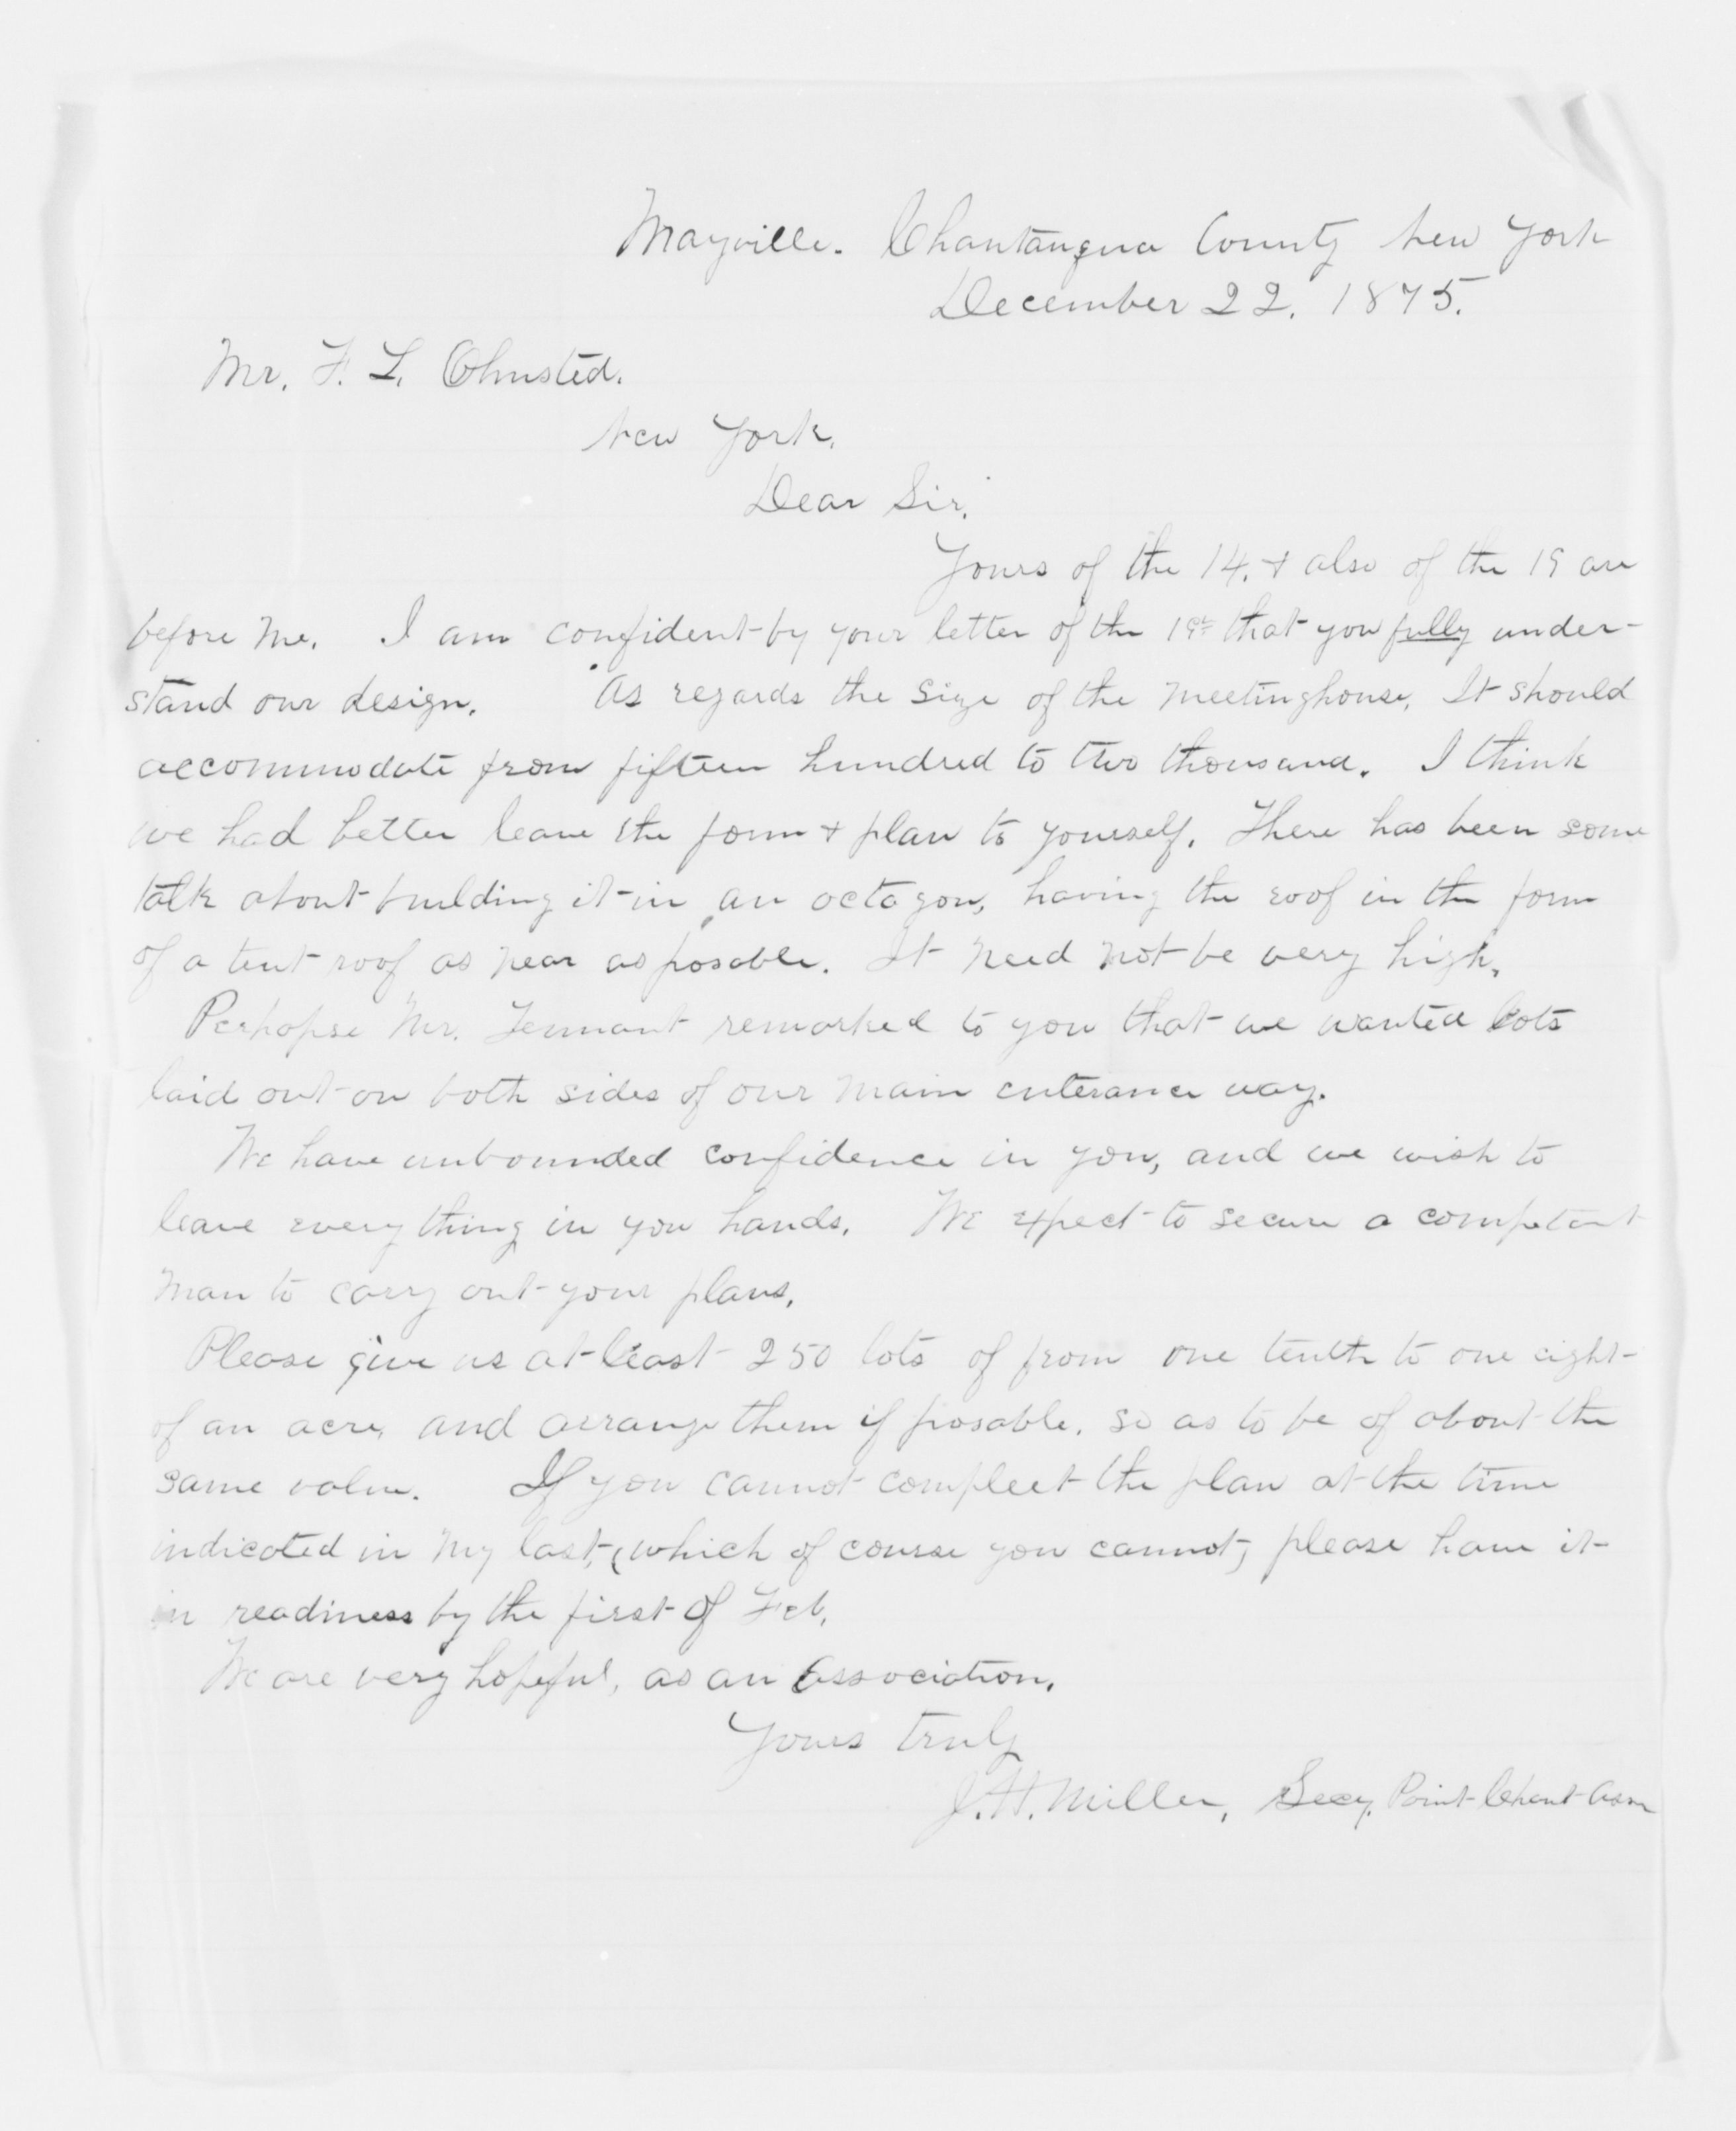 Mayville. Chautauqua County New York
December 22. 1875.
Mr. F. L. Olmsted.
New York.
Dear Sir.
Yours of the 14. & also of the 19 are
before me. I am confident by your letter of the 19th that you fully under-
stand our design. As regards the size of the meetinghouse, It should
accommodate from fifteen hundred to two thousand. I think
we had better leave the form & plan to yourself. There has been some
talk about building it in an octagon, having the roof in the form
of a tent roof as near as posable. It need not be very high.
Perhapse Mr. Tennant remarked to you that we wanted lots
laid out on both sides of our main enterance way.
We have unbounded confidence in you, and we wish to
leave every thing in you hands. We expect to secure a competent
man to carry out your plans.
Please give us at least 250 lots of from one tenth to one eight
of an acre, and arrange them if posable, so as to be of about the
same value. If you cannot compleet the plan at the time
indicated in my last, (which of course you cannot) please have it
in readiness by the first of Feb.
We are very hopeful, as an Association.
Yours truly
J. H. Miller, Secy, Point Chaut Assn